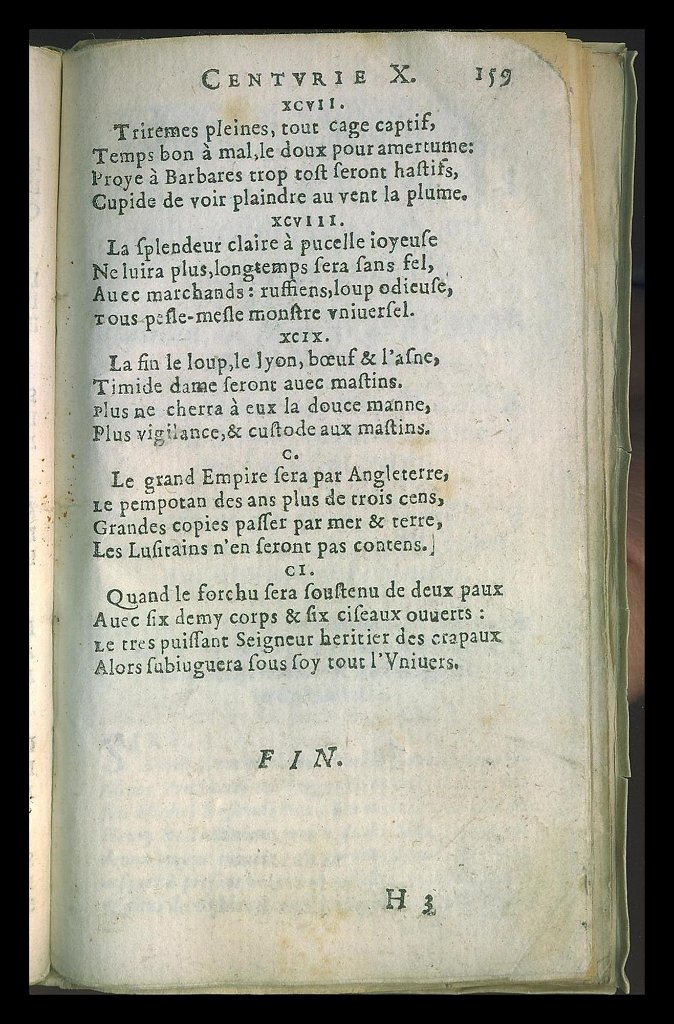 CENTVRIE X. 159
XCVII.
Triremes pleines, tout cage captif,
Temps bon à mal,le doux pour amertume:
Proye à Barbares trop toſt ſeront haſtifs,
Cupide de voir plaindre au vent la plume.
XCVIII.
La ſplendeur claire à pucelle ioyeuſe
Ne luira plus,longtemps ſera ſans ſel,
Auec marchands: ruffiens,loup odieuſe,
Tous peſle-meſle monſtre vniuerſel.
XCIX.
La fin le loup,le lyon, bœuf & l'aſne,
Timide dame ſeront auec maſtins.
Plus ne cherra à eux la douce manne,
Plus vigilance,& cuſtode aux maſtins.
C.
Le grand Empire ſera par Angleterre,
Le pempotan des ans plus de trois cens,
Grandes copies paſſer par mer & terre,
Les Luſitains n'en ſeront pas contens.
CI.
Quand le forchu ſera ſouſtenu de deux paux
Auec ſix demy corps & ſix ciſeaux ouuerts :
Le tres puiſſant Seigneur heritier des crapaux
Alors ſubiuguera ſous ſoy tout l'Vniuers.
FIN.
H 3